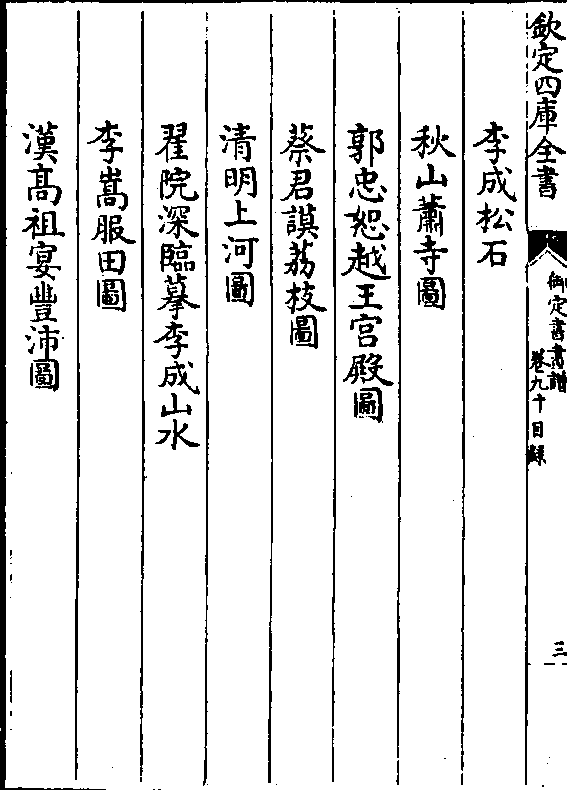 欽定四庫全書
御定書畫譜
卷九十目録
三
李成松石
秋山蕭寺圖
郭忠恕越王宫殿圖
蔡君謨荔枝圖
清明上河圖
翟院深臨摹李成山水
李嵩服田圖
漢髙祖宴豐沛圖